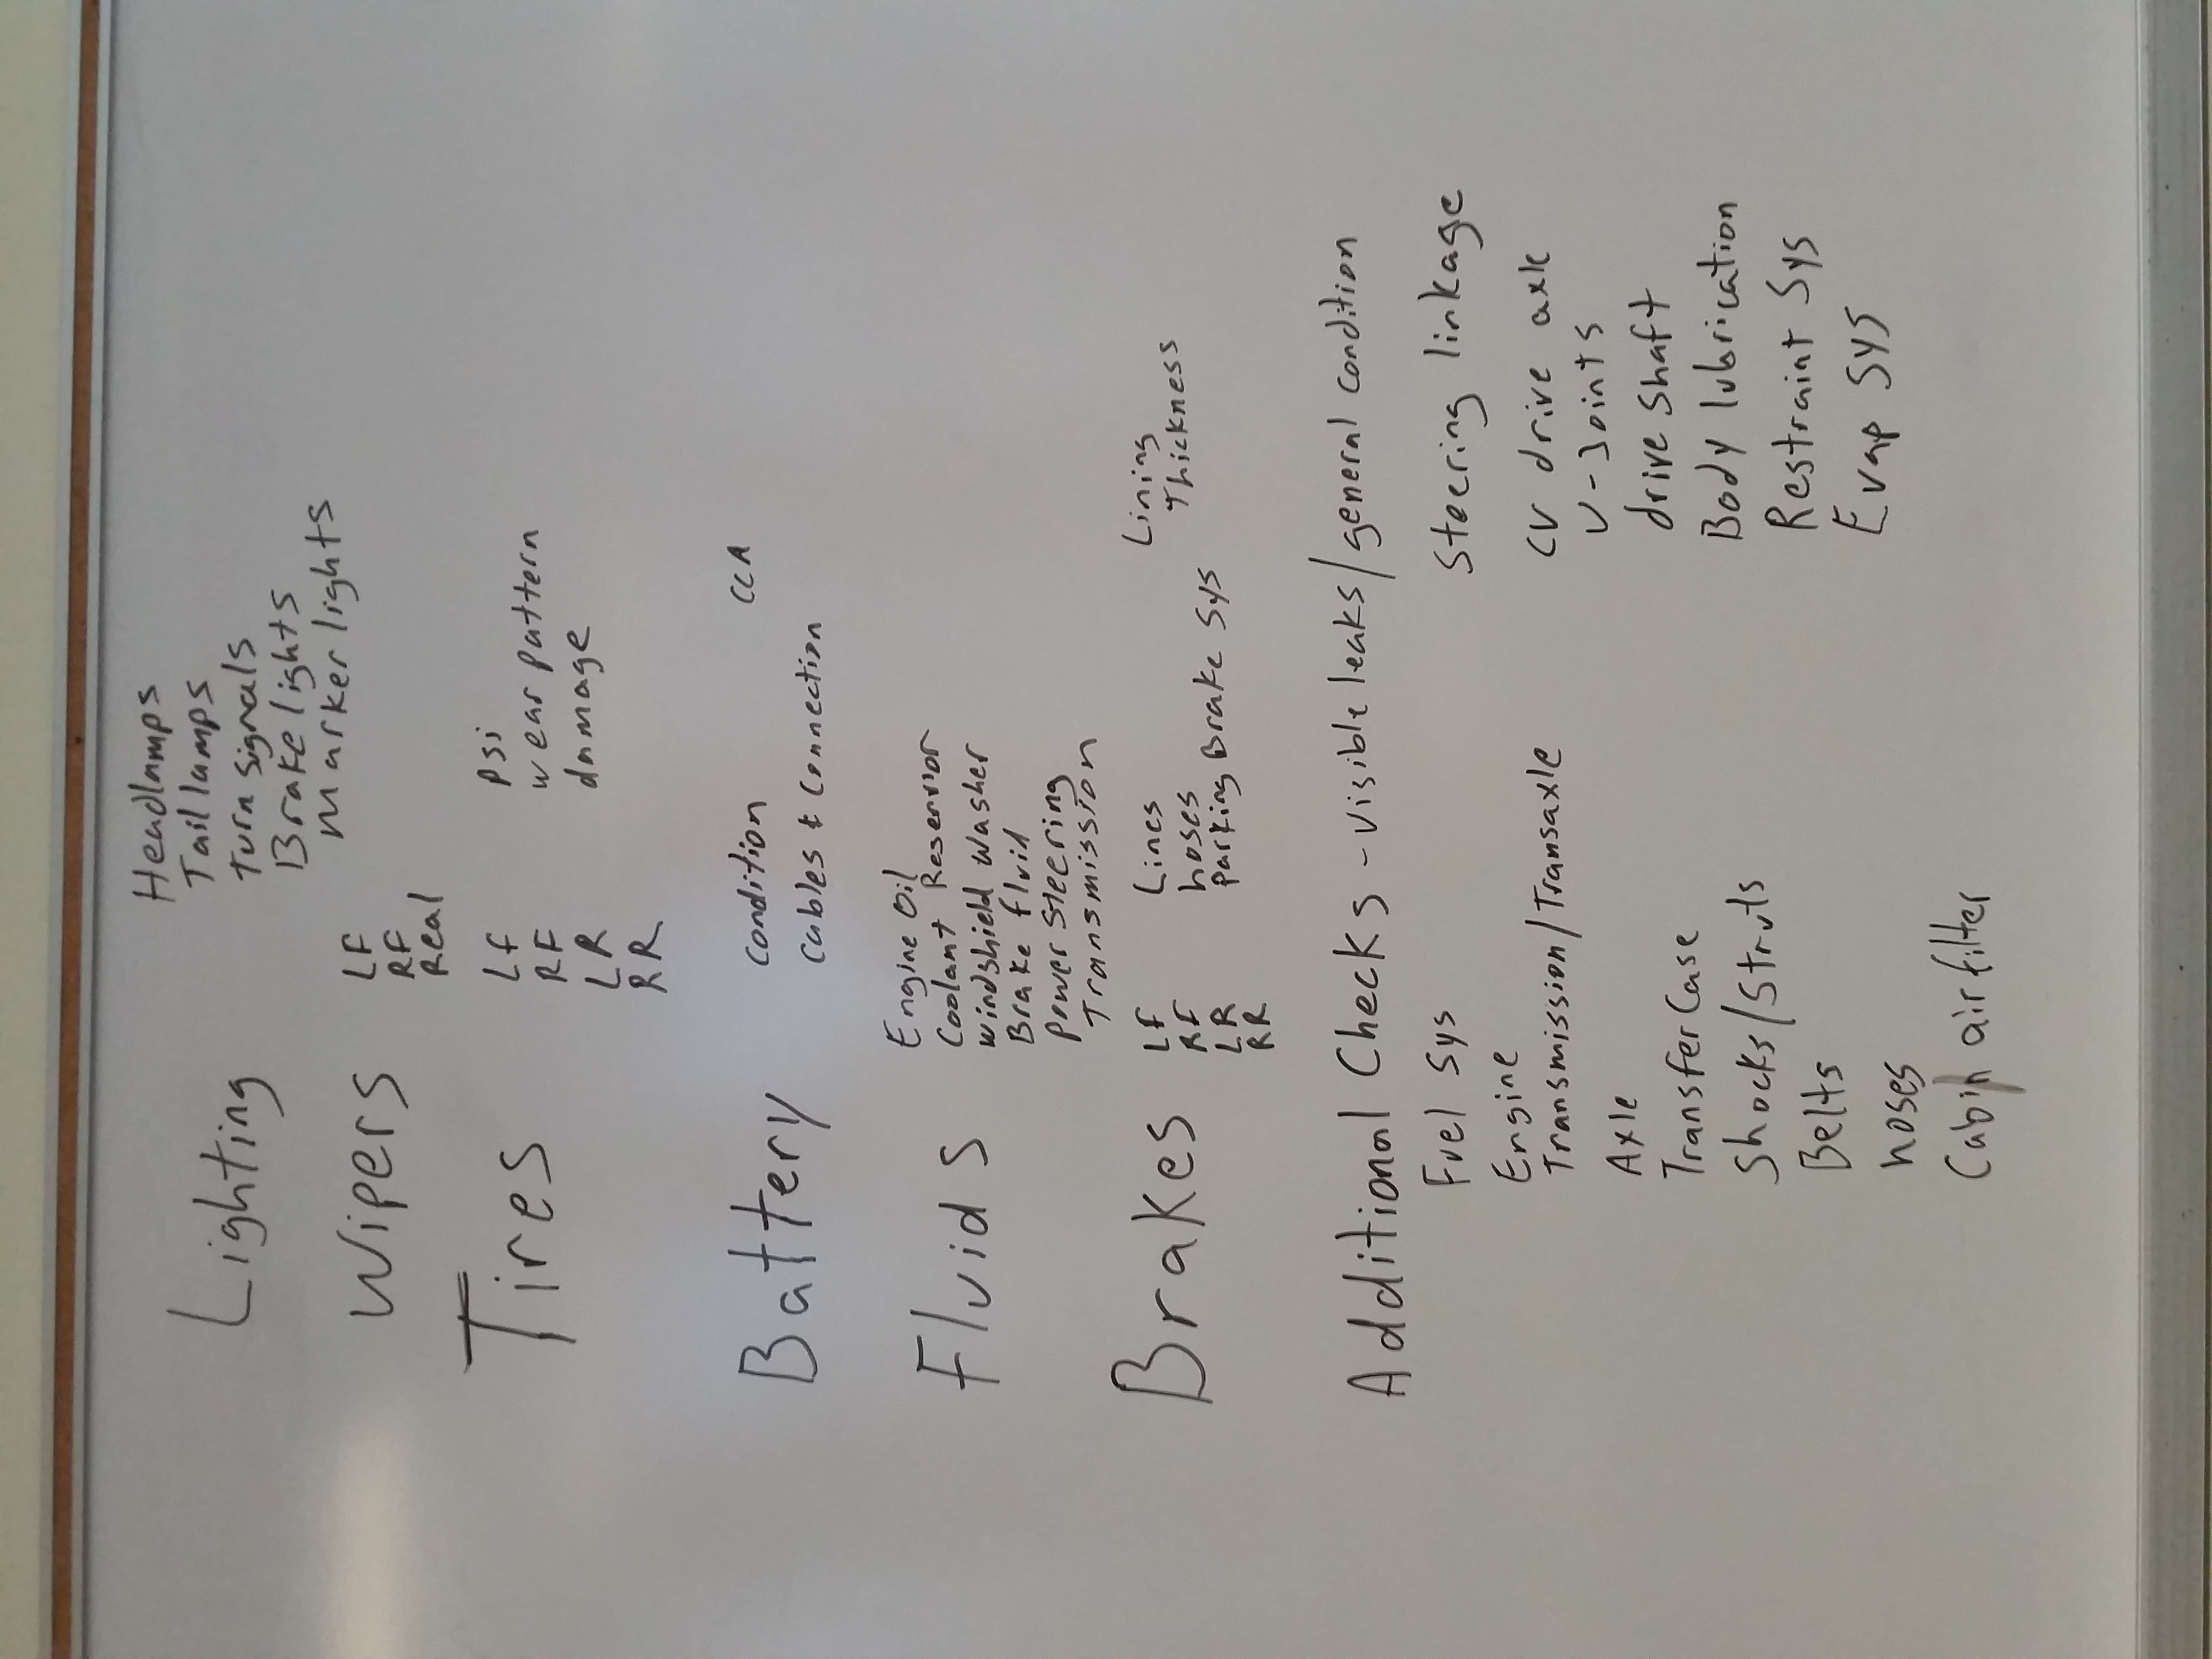 Lighting
Headlamps
Tail lamps
turn signals
Brake lights
Marker lights
Wipers
LF
RF
Real
Tires
LF
RF
LR
RR
psi
wear pattern
damage
Battery
condition
cables & connection
CCA
Fluids
Engine Oil
Coolant Reservior
Windshield Washer
Brake fluid
power steering
Transmission
Brakes
LF
RF
LR
RR
Lines
hoses
parking Brake Sys
Lining
Thickness
Additional Checks - visible leaks/general condition
Fuel Sys
Engine
Transmission/Transaxle
Axle
Transfer Case
Shocks/Struts
Belts
hoses
Cabin air filter
Steering linkage
CV drive axle
U-Joints
drive shaft
Body lubrication
Restraint Sys
Evap Sys